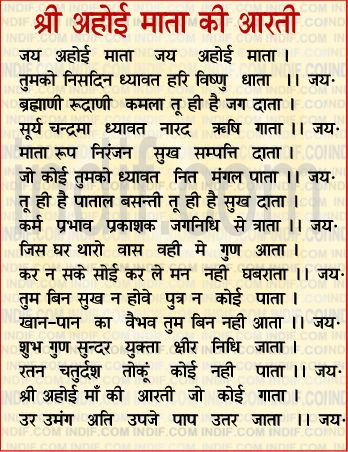 श्री अहोई माता की आरती
जय अहोई माता जय अहोई माता ।
तुमको निसदिन ध्यावत हरि विष्णु धाता ।। जय॰
ब्रह्माणी रूद्राणी कमला तू ही है जग दाता ।
सूर्य चन्द्रमा ध्यावत नारद ऋषि गाता ।। जय॰
माता रूप निरंजन सुख सम्पत्ति दाता ।
जो कोई तुमको ध्यावत नित मंगल पाता ।। जय॰
तू ही है पाताल बसन्ती तू ही है सुख दाता ।
कर्म प्रभाव प्रकाशक जगनिधि से त्राता ।। जय॰
जिस घर थारो वास वही मे गुण आता ।
कर न सके सोई कर ले मन नही घबराता ।। जय॰
तुम बिन सुख न होवे पुत्र न कोई पाता ।
खान-पान का वैभव तुम बिन नही आता ।। जय॰
शुभ गुण सुन्दर युक्ता क्षीर निधि जाता ।
रतन चतुर्दश तोकूं कोई नही पाता ।। जय॰
श्री अहोई माँ की आरती जो कोई गाता ।
उर उमंग अति उपजे पाप उतर जाता ।। जय॰
indif.com